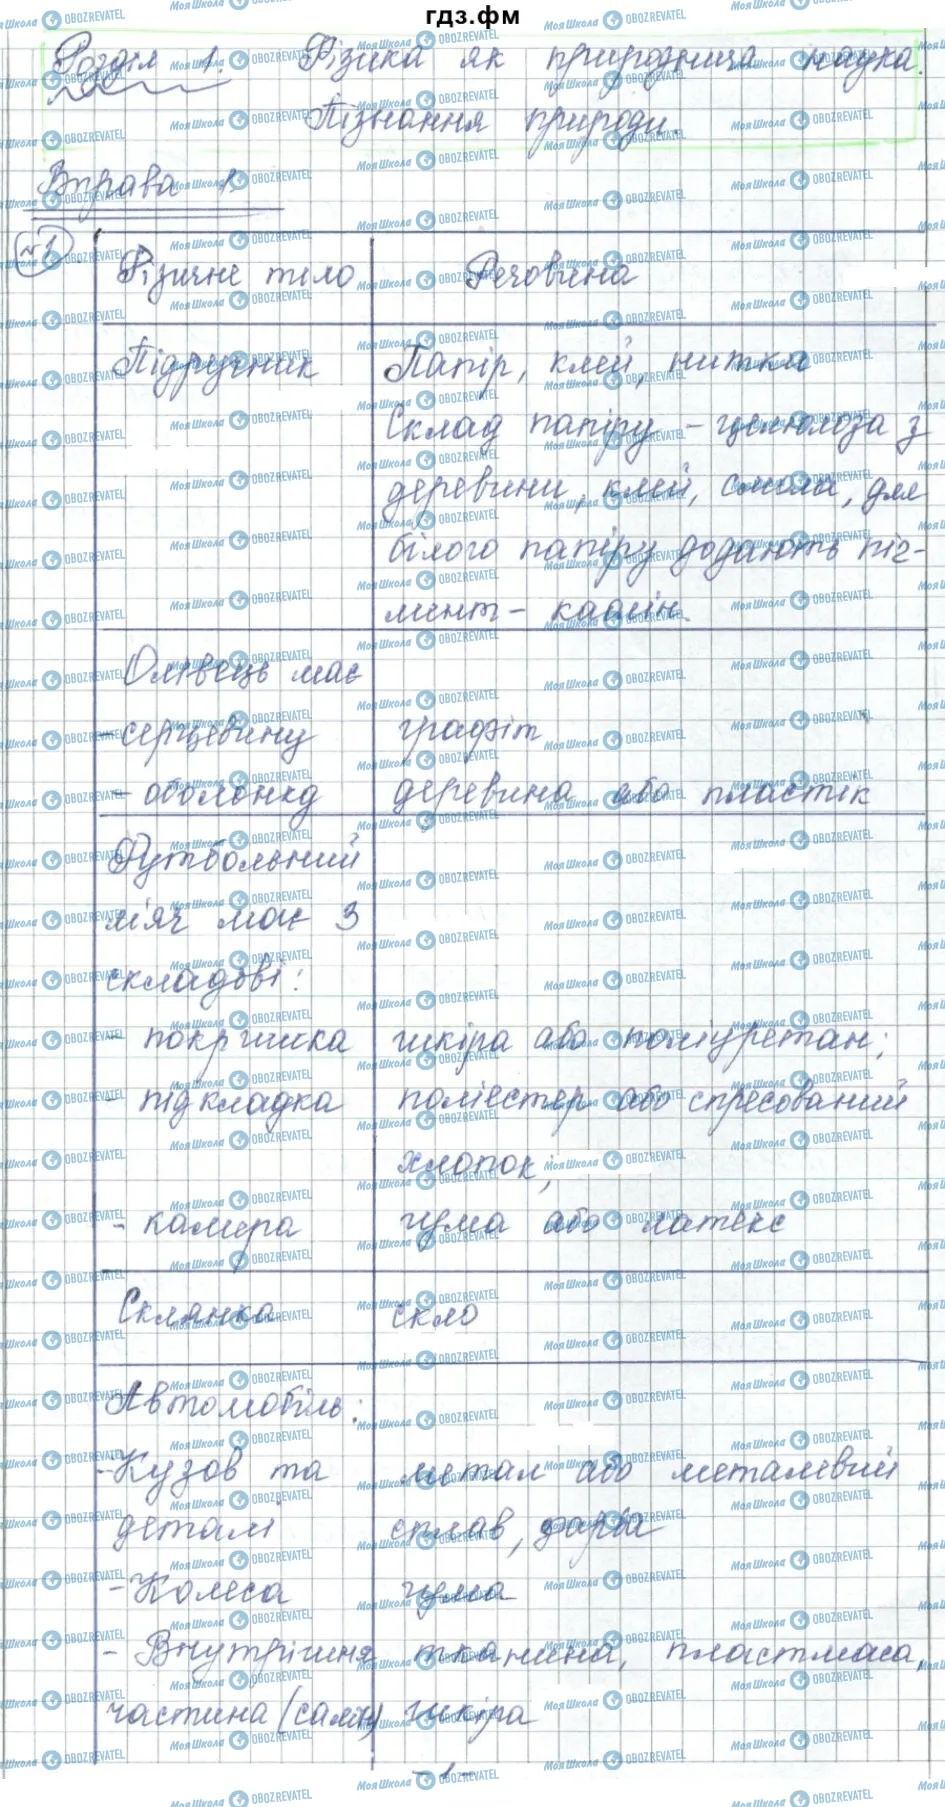 гдз.фм
Розділ 1. Фізика як природнича наука.
Пізнання природи.
Вправа 1.
№1
Фізичне тіло Речовина
Підручник Папір, клей, нитка
Склад папіру - целюлоза з
деревини, клей, смола, для
білого папіру додають піг-
мент - каолін.
Олівець має
- серцевину графіт
- оболонку деревина або пластік
Футбольний
м'яч має 3
складові:
- покришка шкіра або поліуретан;
- підкладка поліестер або спресований
хлопок;
- камера гума або латекс
Склянка скло
Автомобіль:
- Кузов та метал або металевий
деталі сплав, фарба
- Колеса гума
- Внутрішня тканина, пластмаса,
частина (салон) шкіра
- 1 -
МояШкола OBOZREVATEL